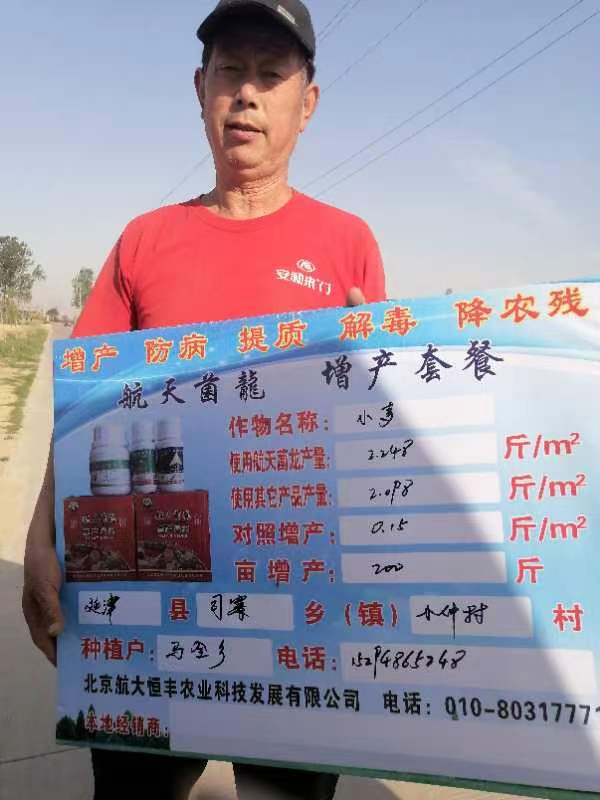 安毅来门
增产 防病 提质 解毒 降农残
航天菌龍 增产套餐
作物名称: 小麦
使用航天菌龙产量: 2.248 斤/m²
使用其它产品产量: 2.098 斤/m²
对照增产: 0.15 斤/m²
亩增产: 200 斤
延津 县 司寨 乡(镇) 小仲村 村
种植户: 马 电话: 15294865248
北京航大恒丰农业科技发展有限公司 电话: 010-80317771
本地经销商: